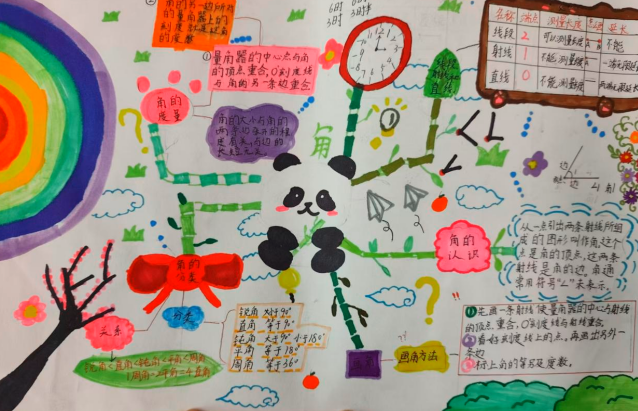 角的另一边所对
的量角器上的
刻度就是这角
的度数
②
量角器的中心点与角
的顶点重合,0刻度线
与角的另一条边重合
①
角的
度量
角的大小与角的
两条边
角
6时
3时
名称 端点 测量长度 延长
线段 2 可以测量长度 不能
射线 1 不能测量
直线 0 不能测量
线段
直线
边
边
角的
认识
从一点引出两条射线所组
成的图形叫作角,这个
点是角的顶点,这两条
射线是角的边,角通
常用符号“∠”来表示。
角的
分类
分类
关系
锐角<直角<钝角<平角<周角
1周角=2平角=4直角
锐角 大于0°
直角 等于9°
钝角 大于90° 小于180°
平角 等于18°
周角 等于360
画角方法
①先画一条射线使量角器的中心与射线
的顶点重合,0刻度线与射线重合
②看好刻度线上的点,再画出另外一
条边
③标上角的符号及度数。